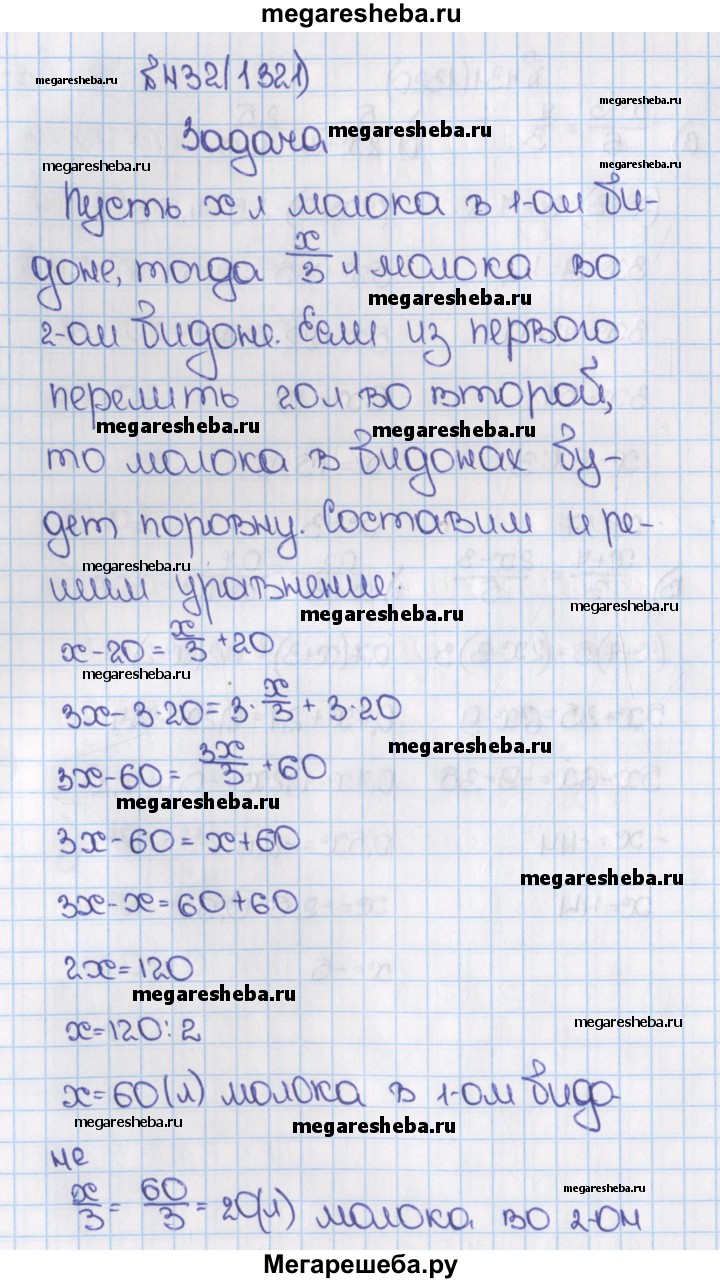 megaresheba.ru
№432(1321)
megaresheba.ru
megaresheba.ru
Задача
megaresheba.ru
megaresheba.ru
megaresheba.ru
Пусть x л молока в 1-ом би-
доне, тогда x/3 л молока во
megaresheba.ru
2-ом бидоне. Если из первого
перелить 20 л во второй,
megaresheba.ru
megaresheba.ru
то молока в бидонах бу-
дет поровну. Составим и ре-
megaresheba.ru
шим уравнение:
megaresheba.ru
megaresheba.ru
x-20=x/3+20
megaresheba.ru
3x-3·20=3·x/3+3·20
megaresheba.ru
3x-60=3x/3+60
megaresheba.ru
3x-60=x+60
megaresheba.ru
3x-x=60+60
2x=120
megaresheba.ru
x=120:2
megaresheba.ru
x=60(л) молока в 1-ом бидо
megaresheba.ru
megaresheba.ru
не
megaresheba.ru
x/3=60/3=20(л) молока во 2-ом
Мегарешеба.ру